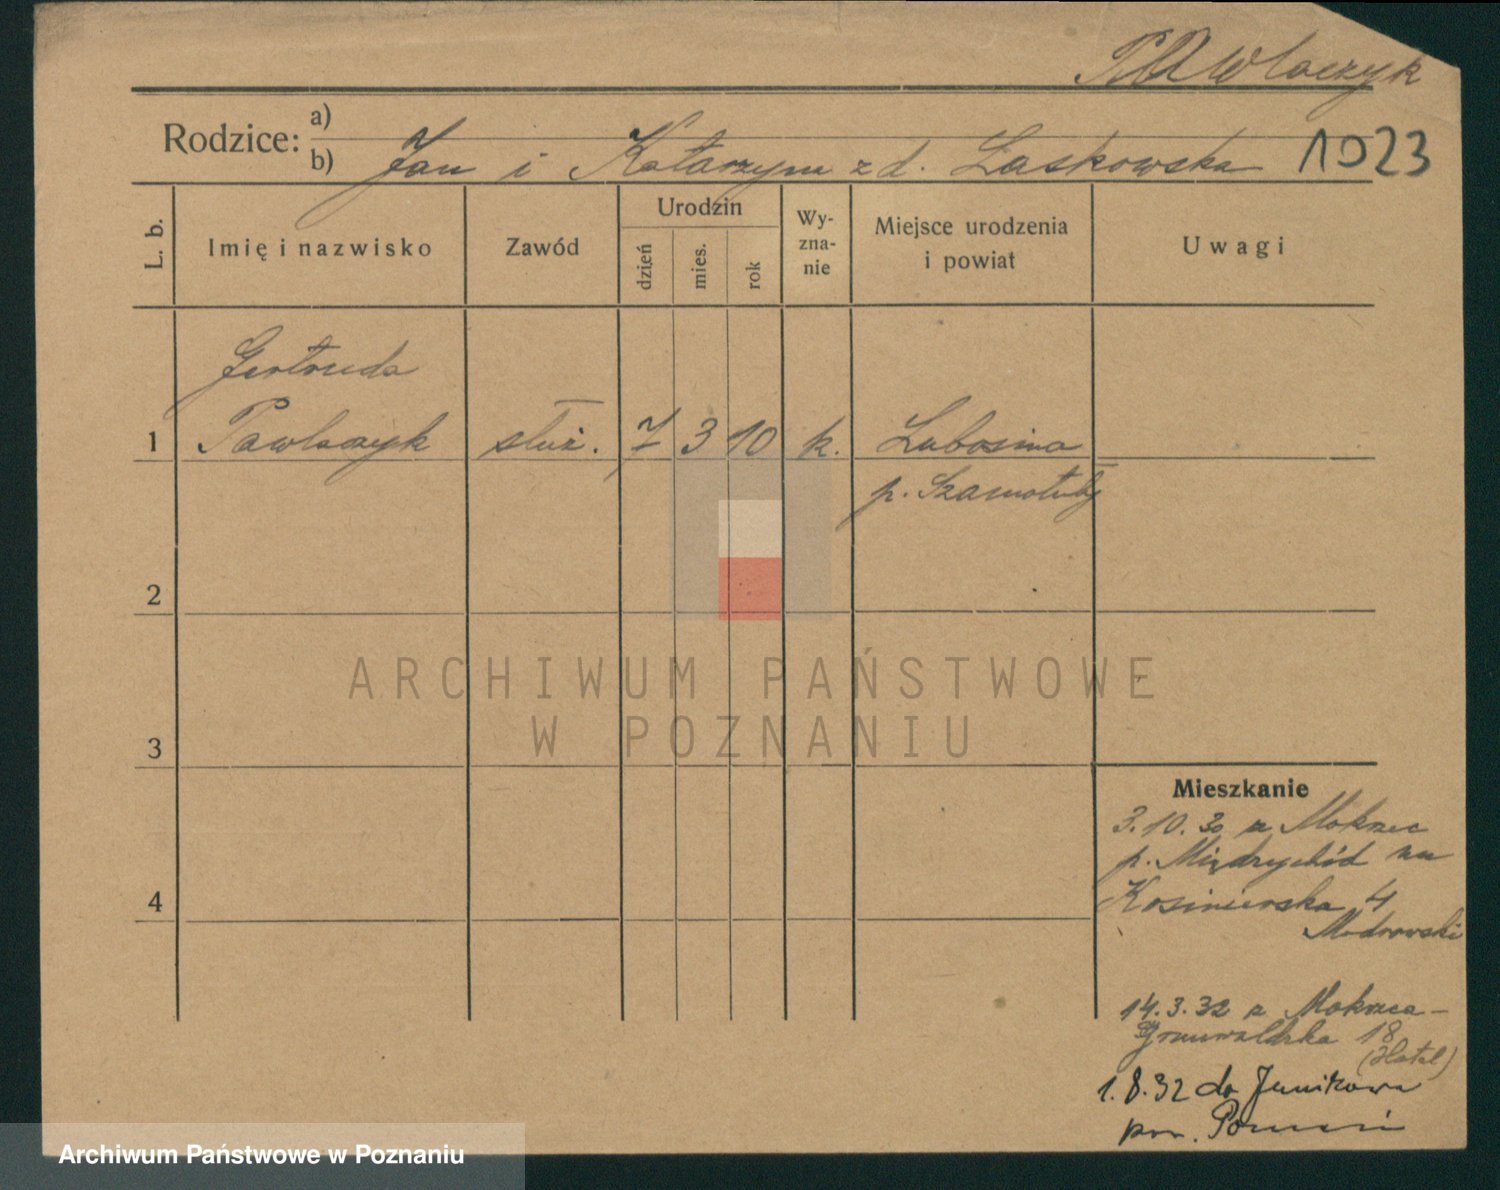 Pawlaczyk
Rodzice: a)
b) Jan i Katarzyna z d. Laskowska
1023
L. b.
Imię i nazwisko
Zawód
Urodzin
dzień
mies.
rok
Wy-
zna-
nie
Miejsce urodzenia
i powiat
Uwagi
Gertruda
1 Pawlaczyk służ. 7 3 10 k. Lubosina
p. Szamotuły
2
3
4
ARCHIWUM PAŃSTWOWE
W POZNANIU
Mieszkanie
3.10.30 z Mokrzec
p. Międzychód na
Kosinierska 4
14.3.32 z Mokrzca -
Grunwaldzka 18
(Hotel)
1.8.32 do Junikowa
pow. Poznań
Archiwum Państwowe w Poznaniu